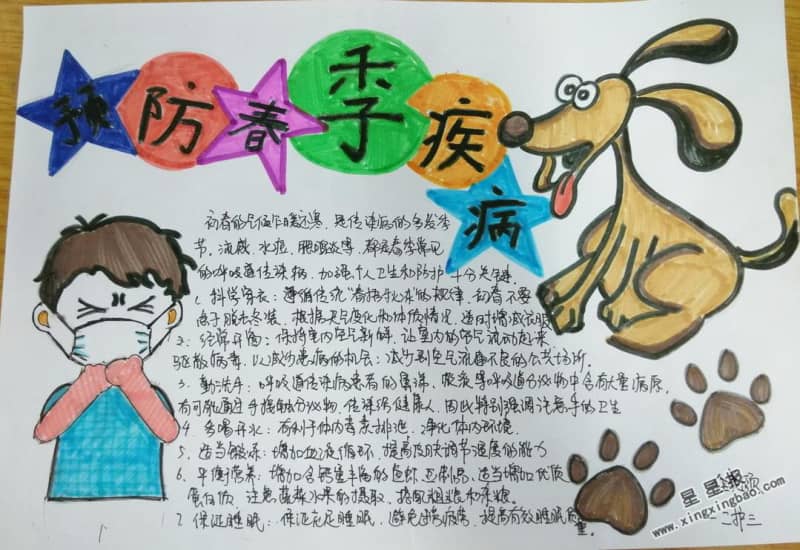 预防春季疾病
初春的气温乍暖还寒,是传染病的多发季
节,流感、水痘、腮腺炎等,都是春季常见
的呼吸道传染病,加强个人卫生和防护十分关键。
1、科学穿衣:遵循传统"春捂秋冻"的规律,初春不要
急于脱去冬装,根据天气变化和体质情况,适时增减衣服
2、经常开窗:保持室内空气新鲜,让室内的空气流动起来
驱散病毒,以减少患病的机会;减少到空气流通不良的公共场所。
3、勤洗手:呼吸道传染病患者的鼻涕、痰液等呼吸道分泌物中含有大量病原,
有可能通过手接触分泌物,传染给健康人,因此特别强调注意手的卫生
4、多喝开水:有利于体内毒素排泄,净化体内环境。
5、适当锻炼:增加血液循环,提高皮肤调节温度的能力
6、平衡营养:增加含钙量丰富的 豆制品、适当增加优质
蛋白质、注意蔬菜水果的摄取、搭配粗粮和杂粮。
7、保证睡眠:保证充足睡眠,避免过度疲劳,提高有效睡眠质
量。
二 三
星星报
www.xingxingbao.com